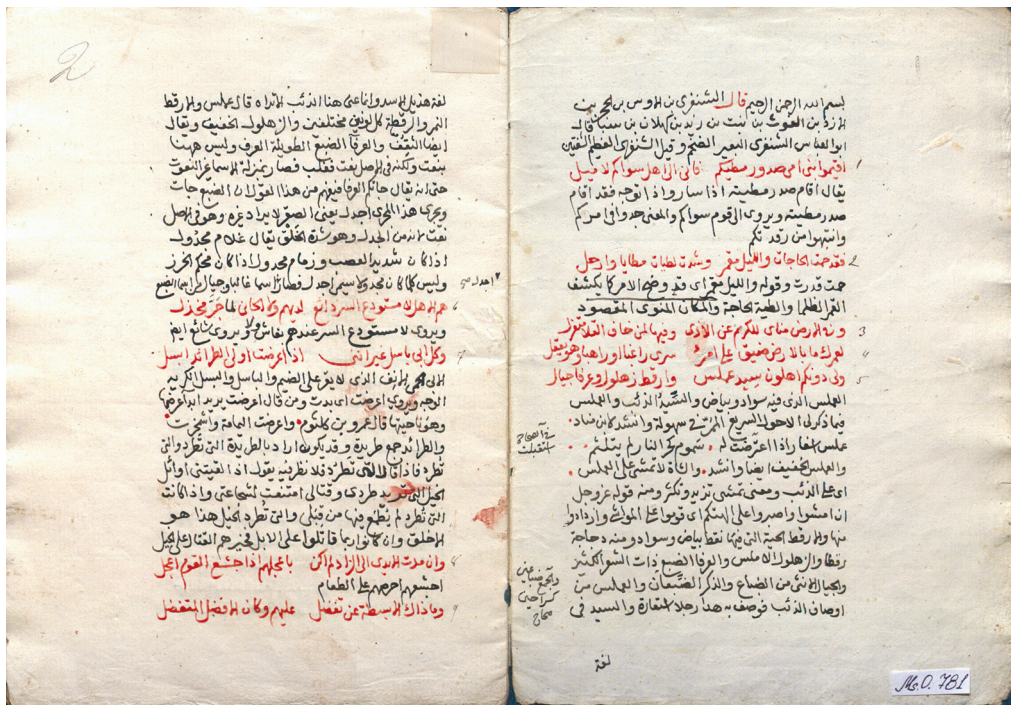 بسم الله الرحمن الرحيم قال الشنفرى بن الاوس بن الحجر بن
الازد بن الغوث بن نبت بن زيد بن كهلان بن سبا قال
ابو العباس الشنفرى البعير الضخم وقيل الشنفرى العظيم الشفتين
1
اقيموا بنى امى صدور مطيكم فانى الى اهل سواكم لاميل
يقال اقام صدر مطيته اذا سار واذا توجه فقد اقام
صدر مطيته ويروى الى قوم سواكم والمعنى جدوا فى امركم
وانتبهوا من رقدتكم
2
فقد حمت الحاجات والليل مقمر وشدت لطيات مطايا وارحل
حمت قدرت وقوله والليل مقمر اى قد وضح الامر كما يكشف
القمر الظلماء والطية الحاجة والمكان المنوى المقصود
3
وفى الارض مناى للكريم عن الاذى وفيها لمن خاف القلا متعزل
4
لعمرك ما بالارض ضيق على امرئ سرى راغبا او راهبا وهو يعقل
5
ولى دونكم اهلون سيد عملس وارقط زهلول وعرفا جيال
العملس الذى فيه سواد وبياض والسيد الذئب والعملس
فيما ذكر لى الاحول السريع المر فى سهولة وانشد لابن مناد
عملس اسفار اذا اعترضت له سموم كحر النار لم يتلثم
والعملس الخفيف ايضا وانشد والشاة لا تمشى على العملس
اى على الذئب ومعنى تمشى تزيد وتكثر ومنه قوله عز وجل
ان امشوا واصبروا على الهتكم اى قوموا على المواشى وازدادوا
منها والارقط الحية التى فيها نقط بياض وسواد ومنه دجاجة
رقطا والزهلول الاملس والعرفا الضبع ذات الشعر الكثير
والجيال الانثى من الضباع والذكر الضبعان والعملس من
اوصاف الذئب فوصف به هنا رجلا استعارة والسيد فى
لغة
Ms.O. 781
2
لغة هذيل الاسد وانما عنى هنا الذئب الا تراه قال عملس والارقط
النمر والرقطة كل لونين مختلفين والزهلول الخفيف ويقال
ايضا النقف والعرفا الضبع الطويلة العرف وليس ههنا
بنعت ولكنه فى الاصل نعت فغلب فصار بمنزلة الاسماء عن النعوت
حتى انه يقال جاتكم العرفا فيفهم من هذا القول ان الضبع جات
ويجرى هذا المجرى اجدل يعنى الصقر لا يراد غيره وهو فى الاصل
نعت لانه من الجدل وهو شدة الخلق يقال غلام مجدول
اذا كان شديد العصب وزمام مجدول اذا كان محكم الخرز
وليس كلما كان مجدولا سمى اجدل فصار اسما غالبا وجيال من اسما الضبع
6
هم الاهل لا مستودع السر ذائع لديهم ولا الجانى بما جر مخذل
ويروى لا مستودع السر عندهم بفاش ولا ويروى شائع ايضا
7
وكل ابى باسل غير اننى اذا عرضت اولى الطرائد ابسل
الابى الحمى الانف الذى لا يقر على الضيم والباسل والبسل الكريه
الوجه ويروى اعرضت اى بدت ومن قال اعرضت يريد ابدا عرضها
وهو ناحيتها قال عمرو بن كلثوم واعرضت اليمامة واشمخرت
والطرائد جمع طريدة وقد يكون اراد بالطريدة التى تطرد والتى
تطرد فاذا قال التى تطرد فلا نظر فيه يقول اذا لقيتنى اوائل
الخيل التى تريد طردى وقتالى امتنعت لشجاعتى واذا كانت
التى تطرد لم يطمع فيها من قبلى والتى تطرد الخيل هذا هو
الاخلق وان كانوا ربما قاتلوا على الابل فخيرهم القتال على الخيل
8
وان مدت الايدى الى الزاد لم اكن باعجلهم اذ اجشع القوم اعجل
اجشعهم احرصهم على الطعام
9
وما ذاك الا بسطة عن تفضل عليهم وكان الافضل المتفضل